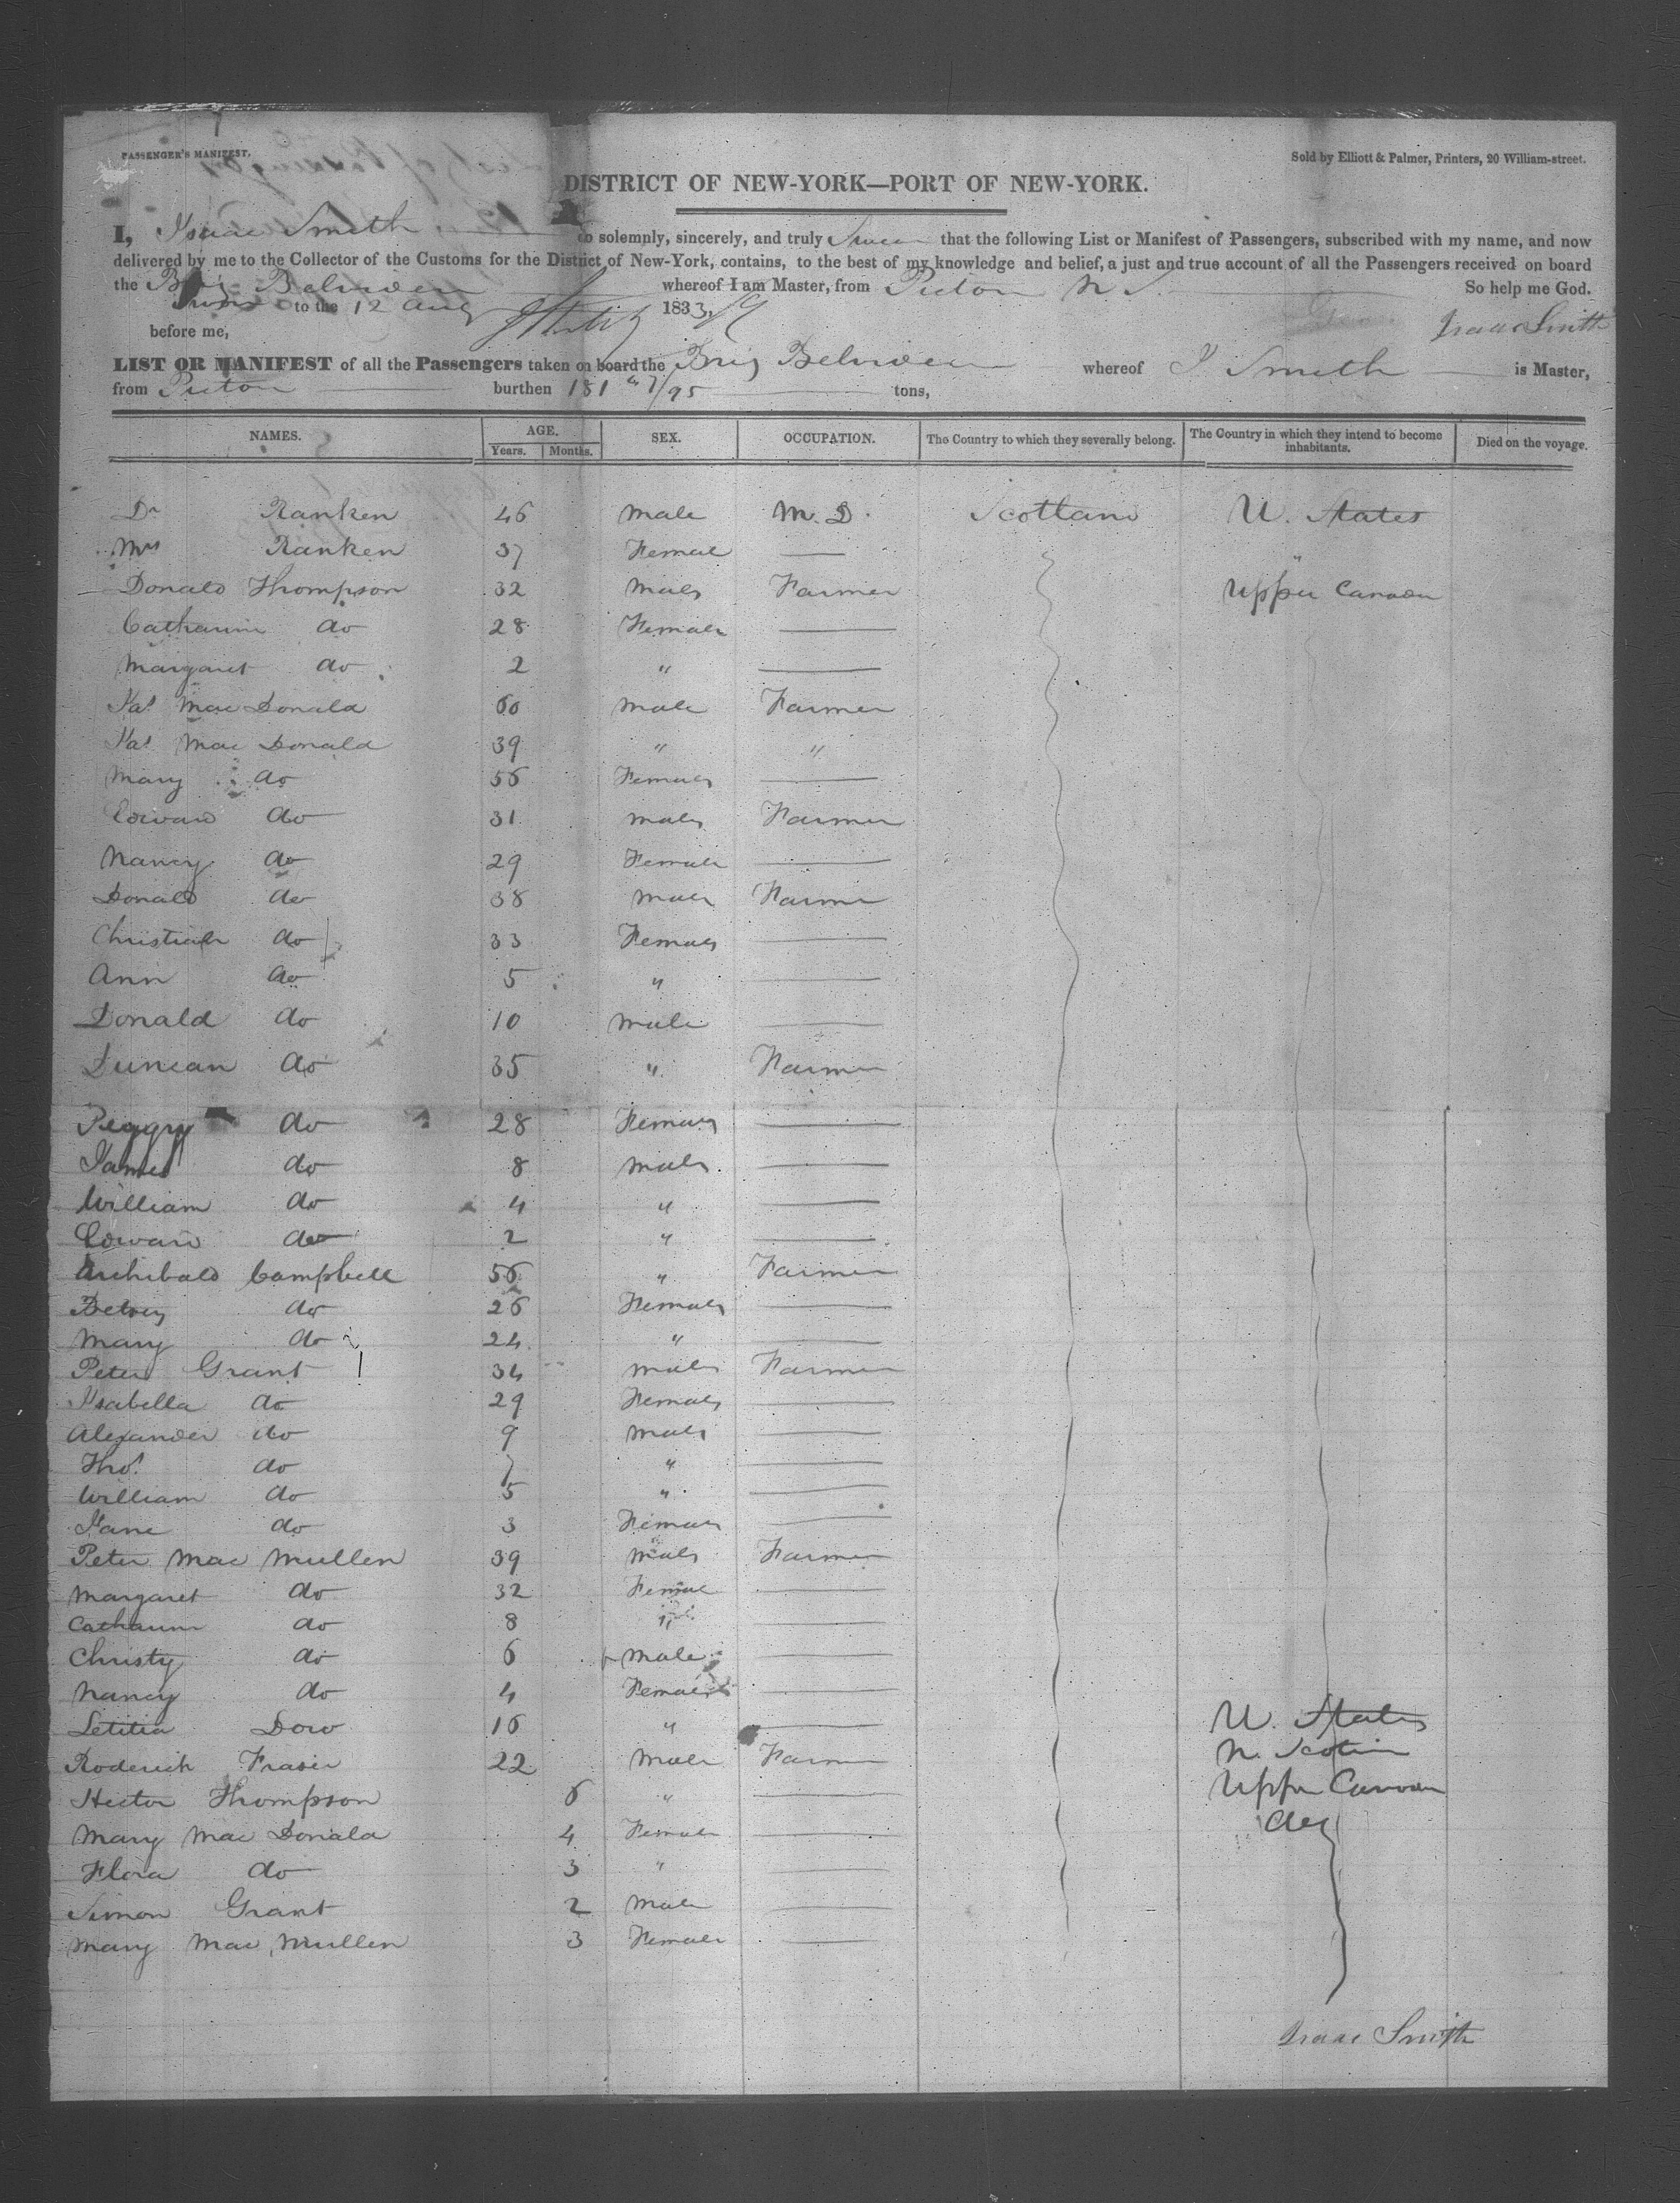 PASSENGER'S MANIFEST.
Sold by Elliott & Palmer, Printers, 20 William-street.
DISTRICT OF NEW-YORK—PORT OF NEW-YORK.
I, Isaac Smith do solemnly, sincerely, and truly Swear that the following List or Manifest of Passengers, subscribed with my name, and now
delivered by me to the Collector of the Customs for the District of New-York, contains, to the best of my knowledge and belief, a just and true account of all the Passengers received on board
the Brig Belvidere whereof I am Master, from Picton N S. So help me God.
Sworn to the 12 Aug 1833
before me, Isaac Smith
LIST OR MANIFEST of all the Passengers taken on board the Brig Belvidere whereof I Smith is Master,
from Picton burthen 181 /95 tons,
NAMES. AGE. Years. Months. SEX. OCCUPATION. The Country to which they severally belong. The Country in which they intend to become inhabitants. Died on the voyage.
Dr Ranken 46 Male M.D. Scotland U. States
Mrs Ranken 37 Female — "
Donald Thompson 32 Male Farmer Upper Canada
Catharine do 28 Female —
Margaret do 2 " —
Jas Mac Donald 60 Male Farmer
Jas Mac Donald 39 " "
Mary do 56 Female —
Edward do 31 Male Farmer
Nancy do 29 Female —
Donald do 38 Male Farmer
Christian do 33 Female —
Ann do 5 " —
Donald do 10 Male —
Duncan do 35 " Farmer
Peggy do 28 Female —
James do 8 Male —
William do 4 " —
Edward do 2 " —
Archibald Campbell 56 " Farmer
Betsey do 26 Female —
Mary do 24 " —
Peter Grant 34 Male Farmer
Isabella do 29 Female —
Alexander do 9 Male —
Thos do 7 " —
William do 5 " —
Jane do 3 Female —
Peter Mac Mullen 39 Male Farmer
Margaret do 32 Female —
Catharine do 8 " —
Christy do 6 Male —
Nancy do 4 Female —
Letitia Dow 16 " — U. States
Roderick Fraser 22 Male Farmer N. Scotia
Hector Thompson 6 " — Upper Canada
Mary Mac Donald 4 Female — do
Flora do 3 " —
Simon Grant 2 Male —
Mary Mac Mullen 3 Female —
Isaac Smith